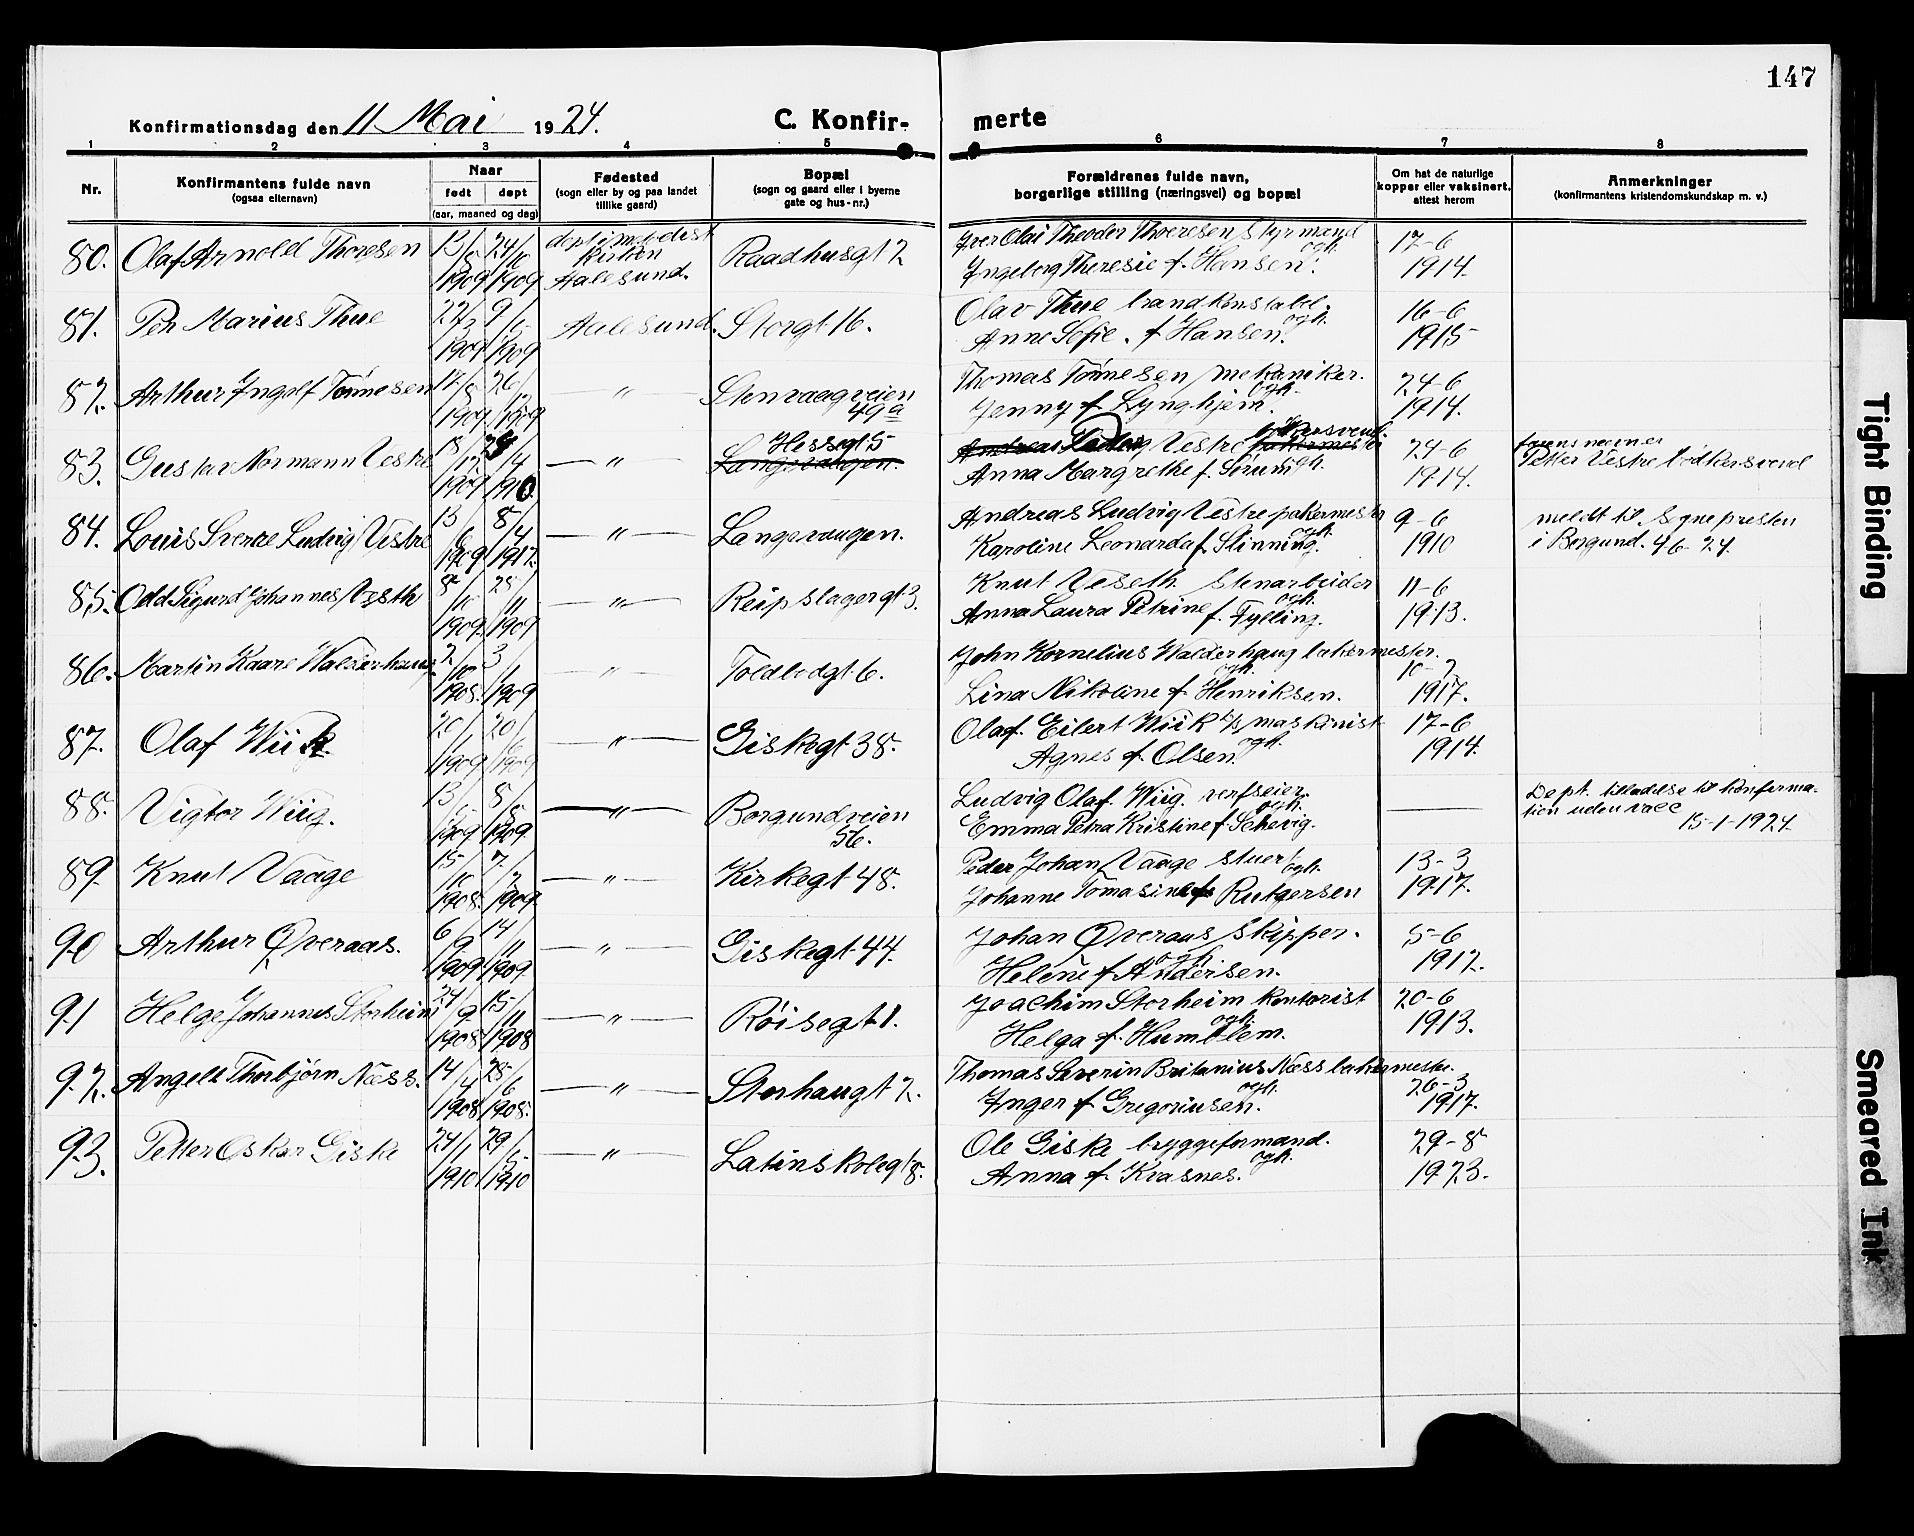 147
Konfirmationsdag den 11 Mai 1924.
C. Konfirmerte
1 2 3 4 5 6 7 8
Nr.
Konfirmantens fulde navn
(ogsaa elternavn)
Naar
født døpt
(aar, maaned og dag)
Fødested
(sogn eller by og paa landet
tillike gaard)
Bopæl
(sogn og gaard eller i byerne
gate og hus-nr.)
Forældrenes fulde navn,
borgerlige stilling (næringsvei) og bopæl
Om hat de naturlige
kopper eller vaksinert,
attest herom
Anmerkninger
(konfirmantens kristendomskundskap m. v.)
80. Olaf Arnold Thoresen 13/5 1909 24/6 1909 døpt i metodist kirken Aalesund. Raadhusgt 2 Iver Olai Theodor Thoresen styrmand 17-6
Ingeborg Theresie f. Hansen. ogh. 1914.
81. Per Marius Thue 1909 1909 Aalesund. Storgt 16. Olav Thue brandkonstabel. 16-6
Anne Sofie f. Hansen. ogh. 1915
82. Arthur Ingolf Tønnesen 1909 26/12 1909 — " — Stenvaagveien 49a Thomas Tønnesen mekaniker. 24-6
Jenny f. Lynghjem. ogh. 1914.
83. Gustav Normann Vestre 18/12 1909 1910 — " — Hessagt 5 Langevaagen. Andreas Ludvig Vestre 24-6 farens navn er
Anna Margrethe f. Sørum ogh. 1914. Petter Vestre bødkersvend
84. Louis Sverre Ludvig Vestre 13/6 1909 8/4 1912. — " — Langevaagen. Andreas Ludvig Vestre pakermester 9-6 meldt til sognepresten
Karoline Leonarda f. Slinning. ogh. 1910 i Borgund. 4-6-24.
85. Odd Sigurd Johannes Veseth 8/10 1909. 28/11 1909 — " — Reipslagergt 3. Knut Veseth stenarbeider 11-6
Anna Laura Petrine f. Fylling. ogh. 1913.
86. Martin Kaare Walderhaug 2/10 1908. 3/1 1909 — " — Toldbodgt 6. John Kornelius Walderhaug bakermester. 10-2
Lina Nikoline f. Henriksen. ogh. 1917.
87. Olaf Wiik 20/1 1909 20/6 1909 — " — Giskegt 38. Olaf Eilert Wiik maskinist 17-6
Agnes f. Olsen. ogh. 1914.
88. Vigtor Wiig. 13/5 1909 8/8 1909 — " — Borgundveien 56. Ludvig Olaf Wiig. verfseier. — Dept. tilladelse til konfirma-
Emma Petra Kristine f. Schevig. ogh. tion uden vacc 15-1-1924.
89. Knut Vaage 15/10 1908. 7/2 1909. — " — Kirkegt 48. Peder Johan Vaage stuert 13-3
Johanne Tomasine f. Rutgersen ogh. 1917.
90 Arthur Øveraas. 6/9 1909 14/11 1909 — " — Giskegt 44. Johan Øveraas skipper. 5-6
Helene f. Andersen. ogh. 1912.
91 Helge Johannes Storheim 24/9 1908 15/11 1908 — " — Røisegt 1. Joachim Storheim kontorist 20-6
Helga f. Humblem. ogh. 1913.
92. Angell Thorbjørn Næss. 14/4 1908 28/6 1908. — " — Storhaugt 2. Thomas Severin Britanius Næss bakermester. 26-3
Inger f. Gregoriussen. ogh. 1917.
93. Petter Oskar Giske 24/1 1910 29/5 1910 — " — Latinskolegt 8. Ole Giske bryggeformand. 29-8
Anna f. Krasnes. ogh. 1923.
Tight Binding
Smeared Ink